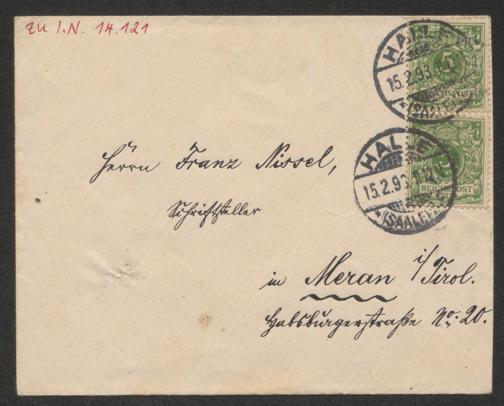 zu I.N. 14.121
HALLE
15.2.93
(SAALE)
5
REICHSPOST
HALLE
15.2.93
(SAALE)
REICHSPOST
Herrn Franz Nissel,
Schriftsteller
in Meran i/Tirol.
Habsburgerstraße No: 20.